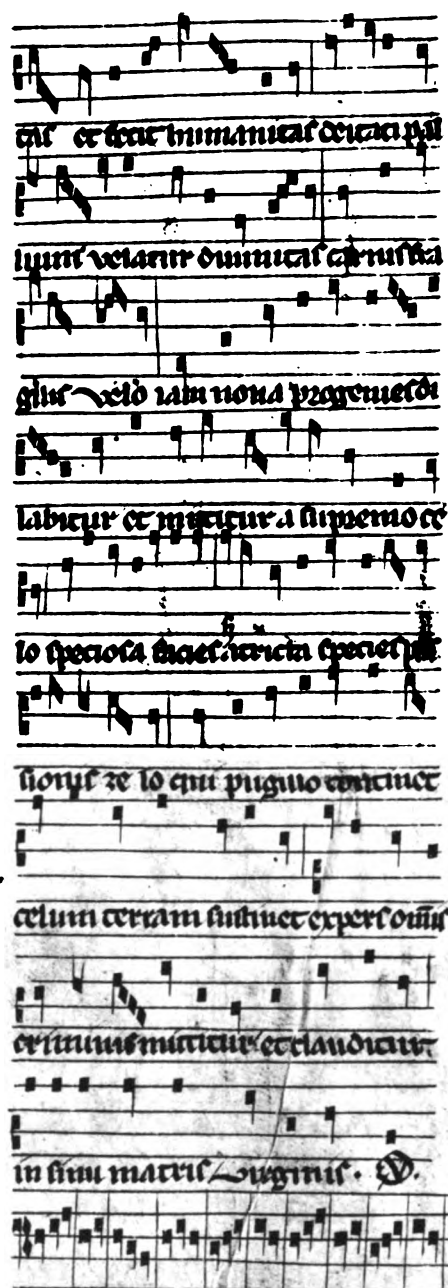 tas et fecit humanitas deitati pall
luius velatur diuinitas carnis stra
gilis velo iam noua progenies di
labitur et mittitur a supremo ce
lo speciosa facies species
sionis ze lo qui pugillo continet
celum terram sustinet expers omnis
criminis mittitur et clauditur
in sinu matris virginis. V.